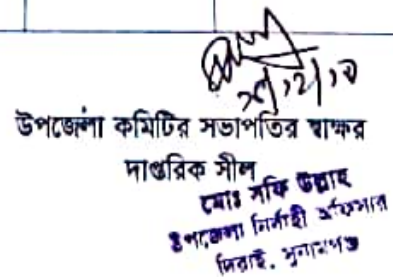 উপজেলা কমিটির সভাপতির স্বাক্ষর
দাপ্তরিক সীল
মোঃ সফি উল্লাহ
উপজেলা নির্বাহী অফিসার
দিরাই, সুনামগঞ্জ